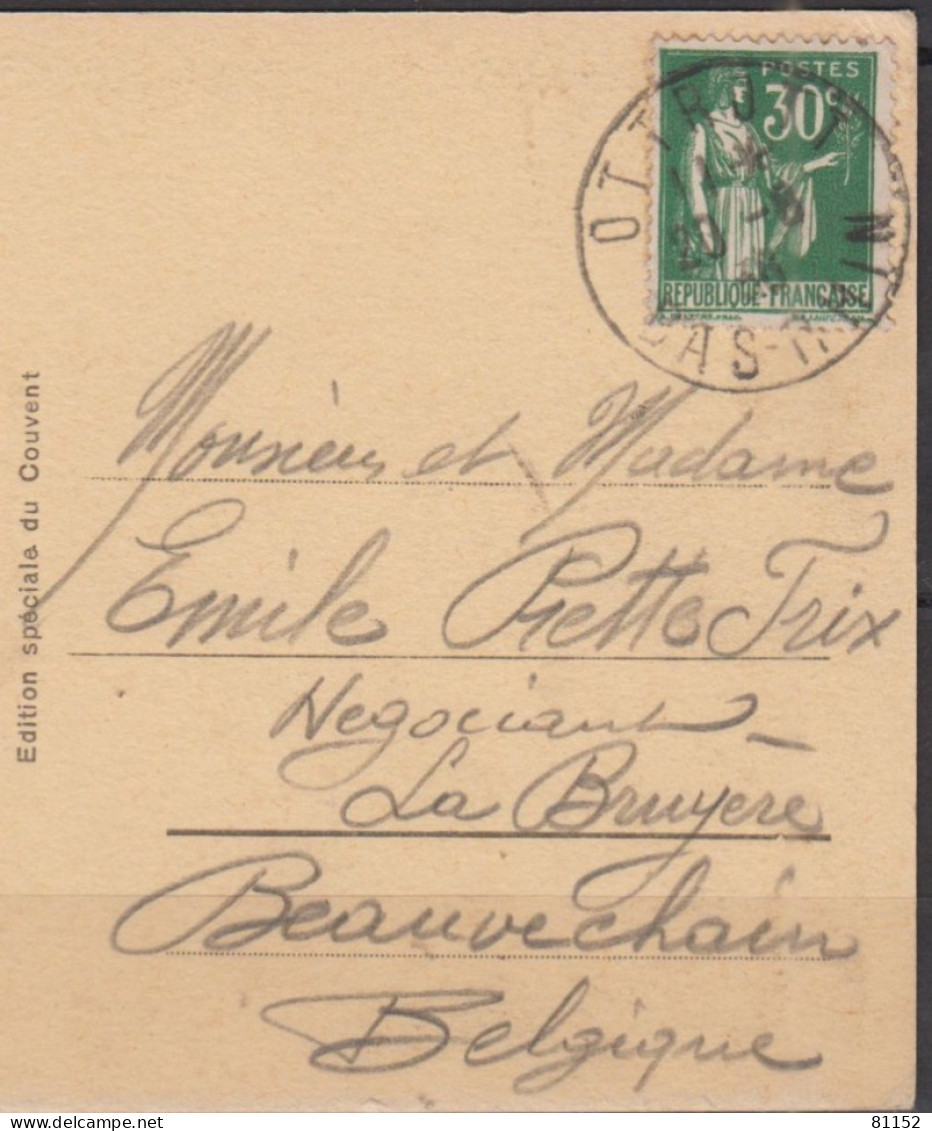 POSTES
30c
OTTROTT
11
20
RÉPUBLIQUE-FRANÇAISE
BAS-RHIN
Edition spéciale du Couvent
Monsieur et Madame
Emile Piette Frix
Negociant
La Bruyere
Beauvechain
Belgique
delcampe.net
81152